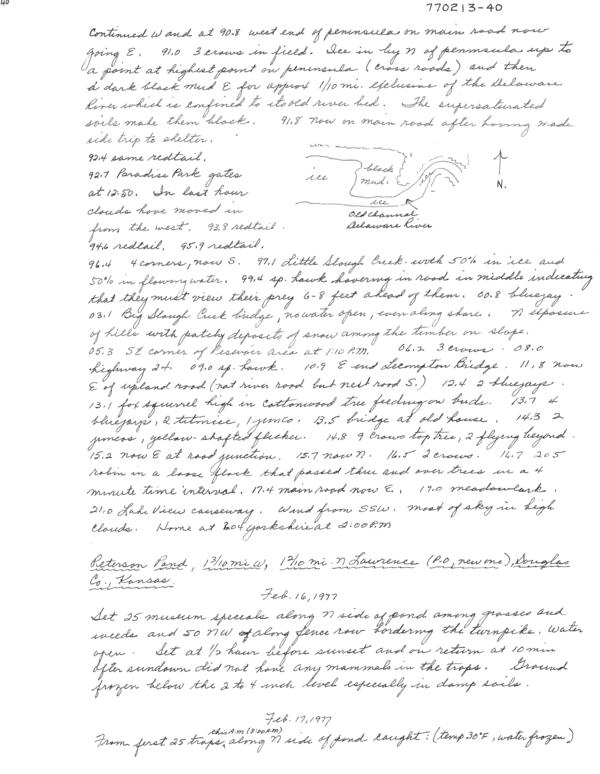 40
770213-40
Continued W and at 90.8 west end of peninsula on main road now
going E. 91.0 3 crows in field. Ice in by N of peninsula up to
a point at highest point on peninsula (cross roads) and then
a dark black mud E for approx 1/10 mi. exclusive of the Delaware
River which is confined to its old river bed. The supersaturated
soils make them black. 91.8 now on main road after having made
side trip to shelter.
92.4 same redtail.
92.7 Paradise Park gates
at 12:50. In last hour
clouds have moved in
from the west. 93.8 redtail.
94.6 redtail. 95.9 redtail.
ice
black
mud.
ice
Old channel
Delaware River
N.
96.4 4 corners, now S. 97.1 Little Slough Creek with 50% in ice and
50% in flowing water. 99.4 sp. hawk hovering in road in middle indicating
that they must view their prey 6-8 feet ahead of them. 00.8 bluejay.
03.1 Big Slough Creek bridge, no water open, even along shore. N exposure
of hills with patchy deposits of snow among the timber on slope.
05.3 SE corner of Reservoir area at 1:10 P.M. 06.2 3 crows. 08.0
highway 24. 09.0 sp. hawk. 10.9 E end Lecompton Bridge. 11.8 now
E of upland road (not river road but next road S.) 12.4 2 bluejays.
13.1 fox squirrel high in cottonwood tree feeding on buds. 13.7 4
bluejays, 2 titmice, 1 junco. 13.5 bridge at old house. 14.3 2
juncos, yellow-shafted flicker. 14.8 9 crows top tree, 2 flying beyond.
15.2 now E at road junction. 15.7 now N. 16.5 2 crows. 16.7 205
robin in a loose flock that passed thru and over trees in a 4
minute time interval. 17.4 main road now E. 19.0 meadowlark.
21.0 Lake View causeway. Wind from SSW. most of sky in high
clouds. Home at 604 Yorkshire at 2:00 P.M
Peterson Pond, 1 3/10 mi W, 1 2/10 mi. N Lawrence (P.O, new one), Douglas
Co., Kansas.
Feb. 16, 1977
Set 25 museum specials along N side of pond among grasses and
weeds and 50 NW of along fence row bordering the turnpike. Water
open. Set at 1/2 hour before sunset and on return at 10 min
after sundown did not have any mammals in the traps. Ground
frozen below the 2 to 4 inch level especially in damp soils.
Feb. 17, 1977
this A.M (8:30 AM)
From first 25 traps, along N side of pond caught: (temp 30°F, water frozen)